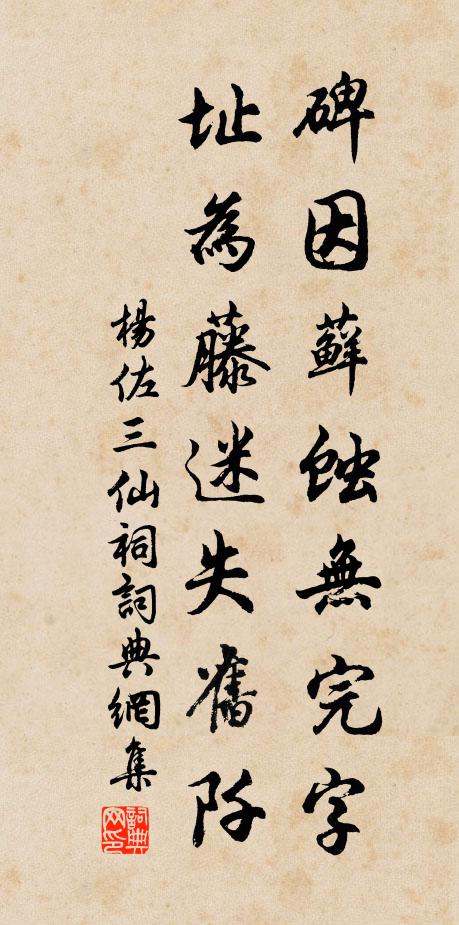 碑因蘚蝕無完字
址為藤迷失舊阡
楊佐三仙祠詞典網集
詞典网印